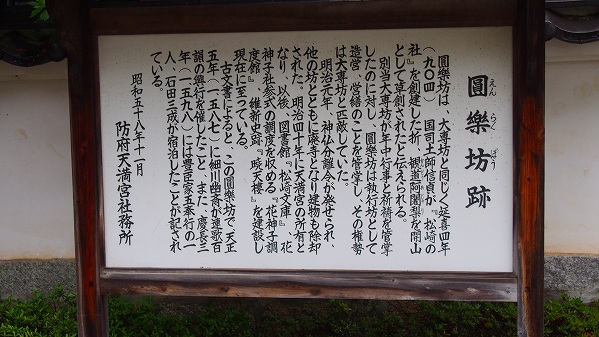 圓樂坊跡
えん らく ぼう
圓樂坊は、大専坊と同じく延喜四年
（九〇四）国司土師信貞が『松崎の
社』を創建した折、観道阿闍梨を開山
として草創されたと伝えられる。
別当大専坊が年中行事と祈禱を管掌
したのに対し、圓樂坊は執行坊として
造営、営繕のことを管掌し、その権勢
は大専坊と匹敵していた。
明治元年、神仏分離令が発せられ、
他の坊とともに廃寺となり建物も除却
された。明治四十年に天満宮の所有と
なり、以後、図書館『松崎文庫』、花
神子社参式の調度を収める『花神子調
度館』、維新史跡『暁天楼』を建設し
現在に至っている。
古文書によると、この圓樂坊で、天正
五年（一五八七）に細川幽斎が連歌百
韻の興行を催したこと、また、慶長三
年（一五九八）には豊臣家五奉行の一
人、石田三成が宿泊したことが記され
ている。
昭和五十八年十一月
防府天満宮社務所